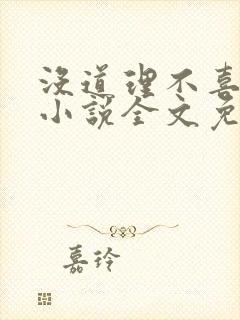 没道理不喜
小说全文免
嘉玲